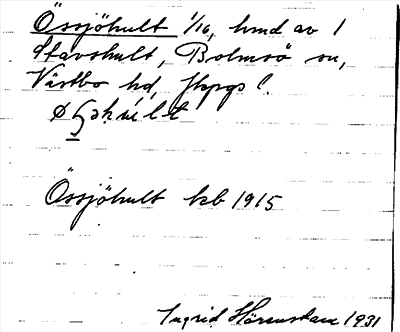 Össjöhult 1/16, hmd av 1
Stavshult, Bolmsö sn,
Västbo hd, Jkpgs l.
Össjöhult kb 1915
Ingrid 1931